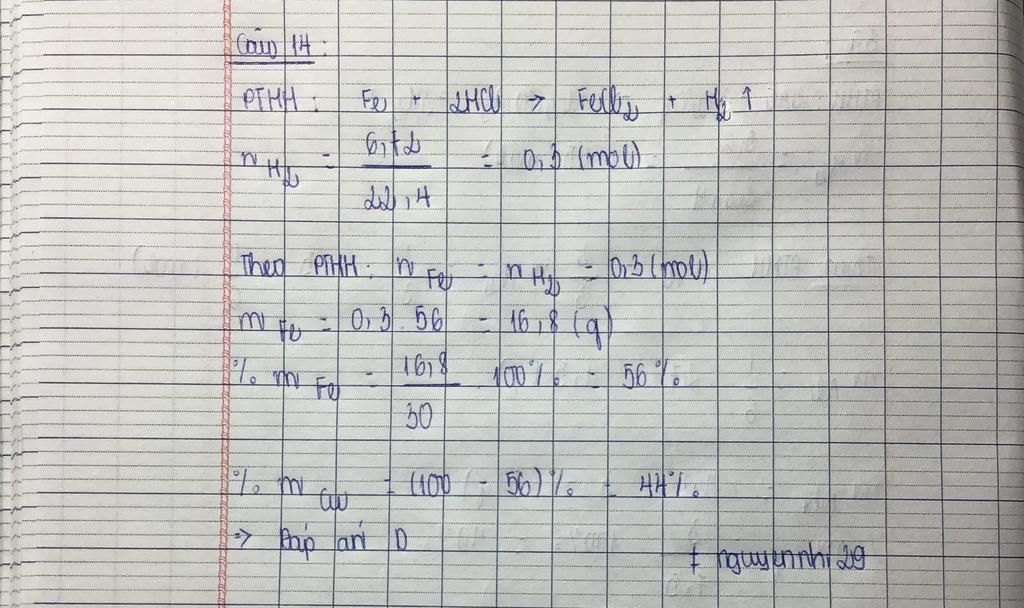 Câu 14:
PTHH: Fe + 2HCl → FeCl₂ + H₂ ↑
n H₂ = 6,72 / 22,4 = 0,3 (mol)
Theo PTHH: n Fe = n H₂ = 0,3 (mol)
m Fe = 0,3 . 56 = 16,8 (g)
% m Fe = 16,8 / 30 . 100% = 56%
% m Cu = (100 - 56)% = 44%
=> Đáp án D
# nguyennhi29